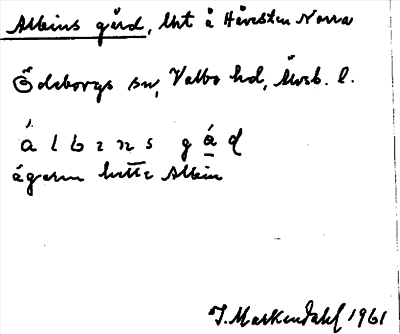 Albins gård, lht å Håvesten Norra
Ödeborgs sn, Valbo hd, Älvsb. l.
á l b ɪ n s g á d
ägaren hette Albin
J. Markendahl 1961